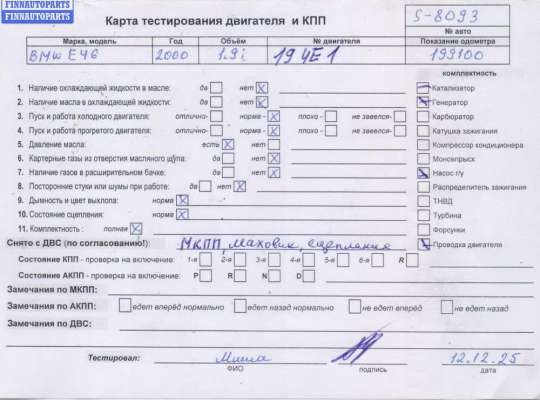 FINNAUTOPARTS
FINNAUTOPARTS
Карта тестирования двигателя и КПП
S-8093
№ авто
Марка, модель Год Объём № двигателя Показание одометра
BMW E46 2000 1.9i 194E1 199100
комплектность
1. Наличие охлаждающей жидкости в масле: да нет X Катализатор
2. Наличие масла в охлаждающей жидкости: да нет X Генератор
3. Пуск и работа холодного двигателя: отлично- норма - X плохо - не завелся- Карбюратор
4. Пуск и работа прогретого двигателя: отлично- норма - X плохо - не завелся- Катушка зажигания
5. Давление масла: есть X нет Компрессор кондиционера
6. Картерные газы из отверстия масляного щупа: да нет X Моновпрыск
7. Наличие газов в расширительном бачке: да нет X Насос г/у
8. Посторонние стуки или шумы при работе: да нет X Распределитель зажигания
9. Дымность и цвет выхлопа: норма X ТНВД
10. Состояние сцепления: норма X Турбина
11. Комплектность : полная X Форсунки
Снято с ДВС (по согласованию!): МКПП, маховик, сцепление Проводка двигателя
Состояние КПП - проверка на включение: 1-я 2-я 3-я 4-я 5-я 6-я R
Состояние АКПП - проверка на включение: P R N D
Замечания по МКПП:
Замечания по АКПП: едет вперёд нормально едет назад нормально не едет вперёд не едет назад
Замечания по ДВС:
Тестировал: Миша 12.12.25
ФИО подпись дата